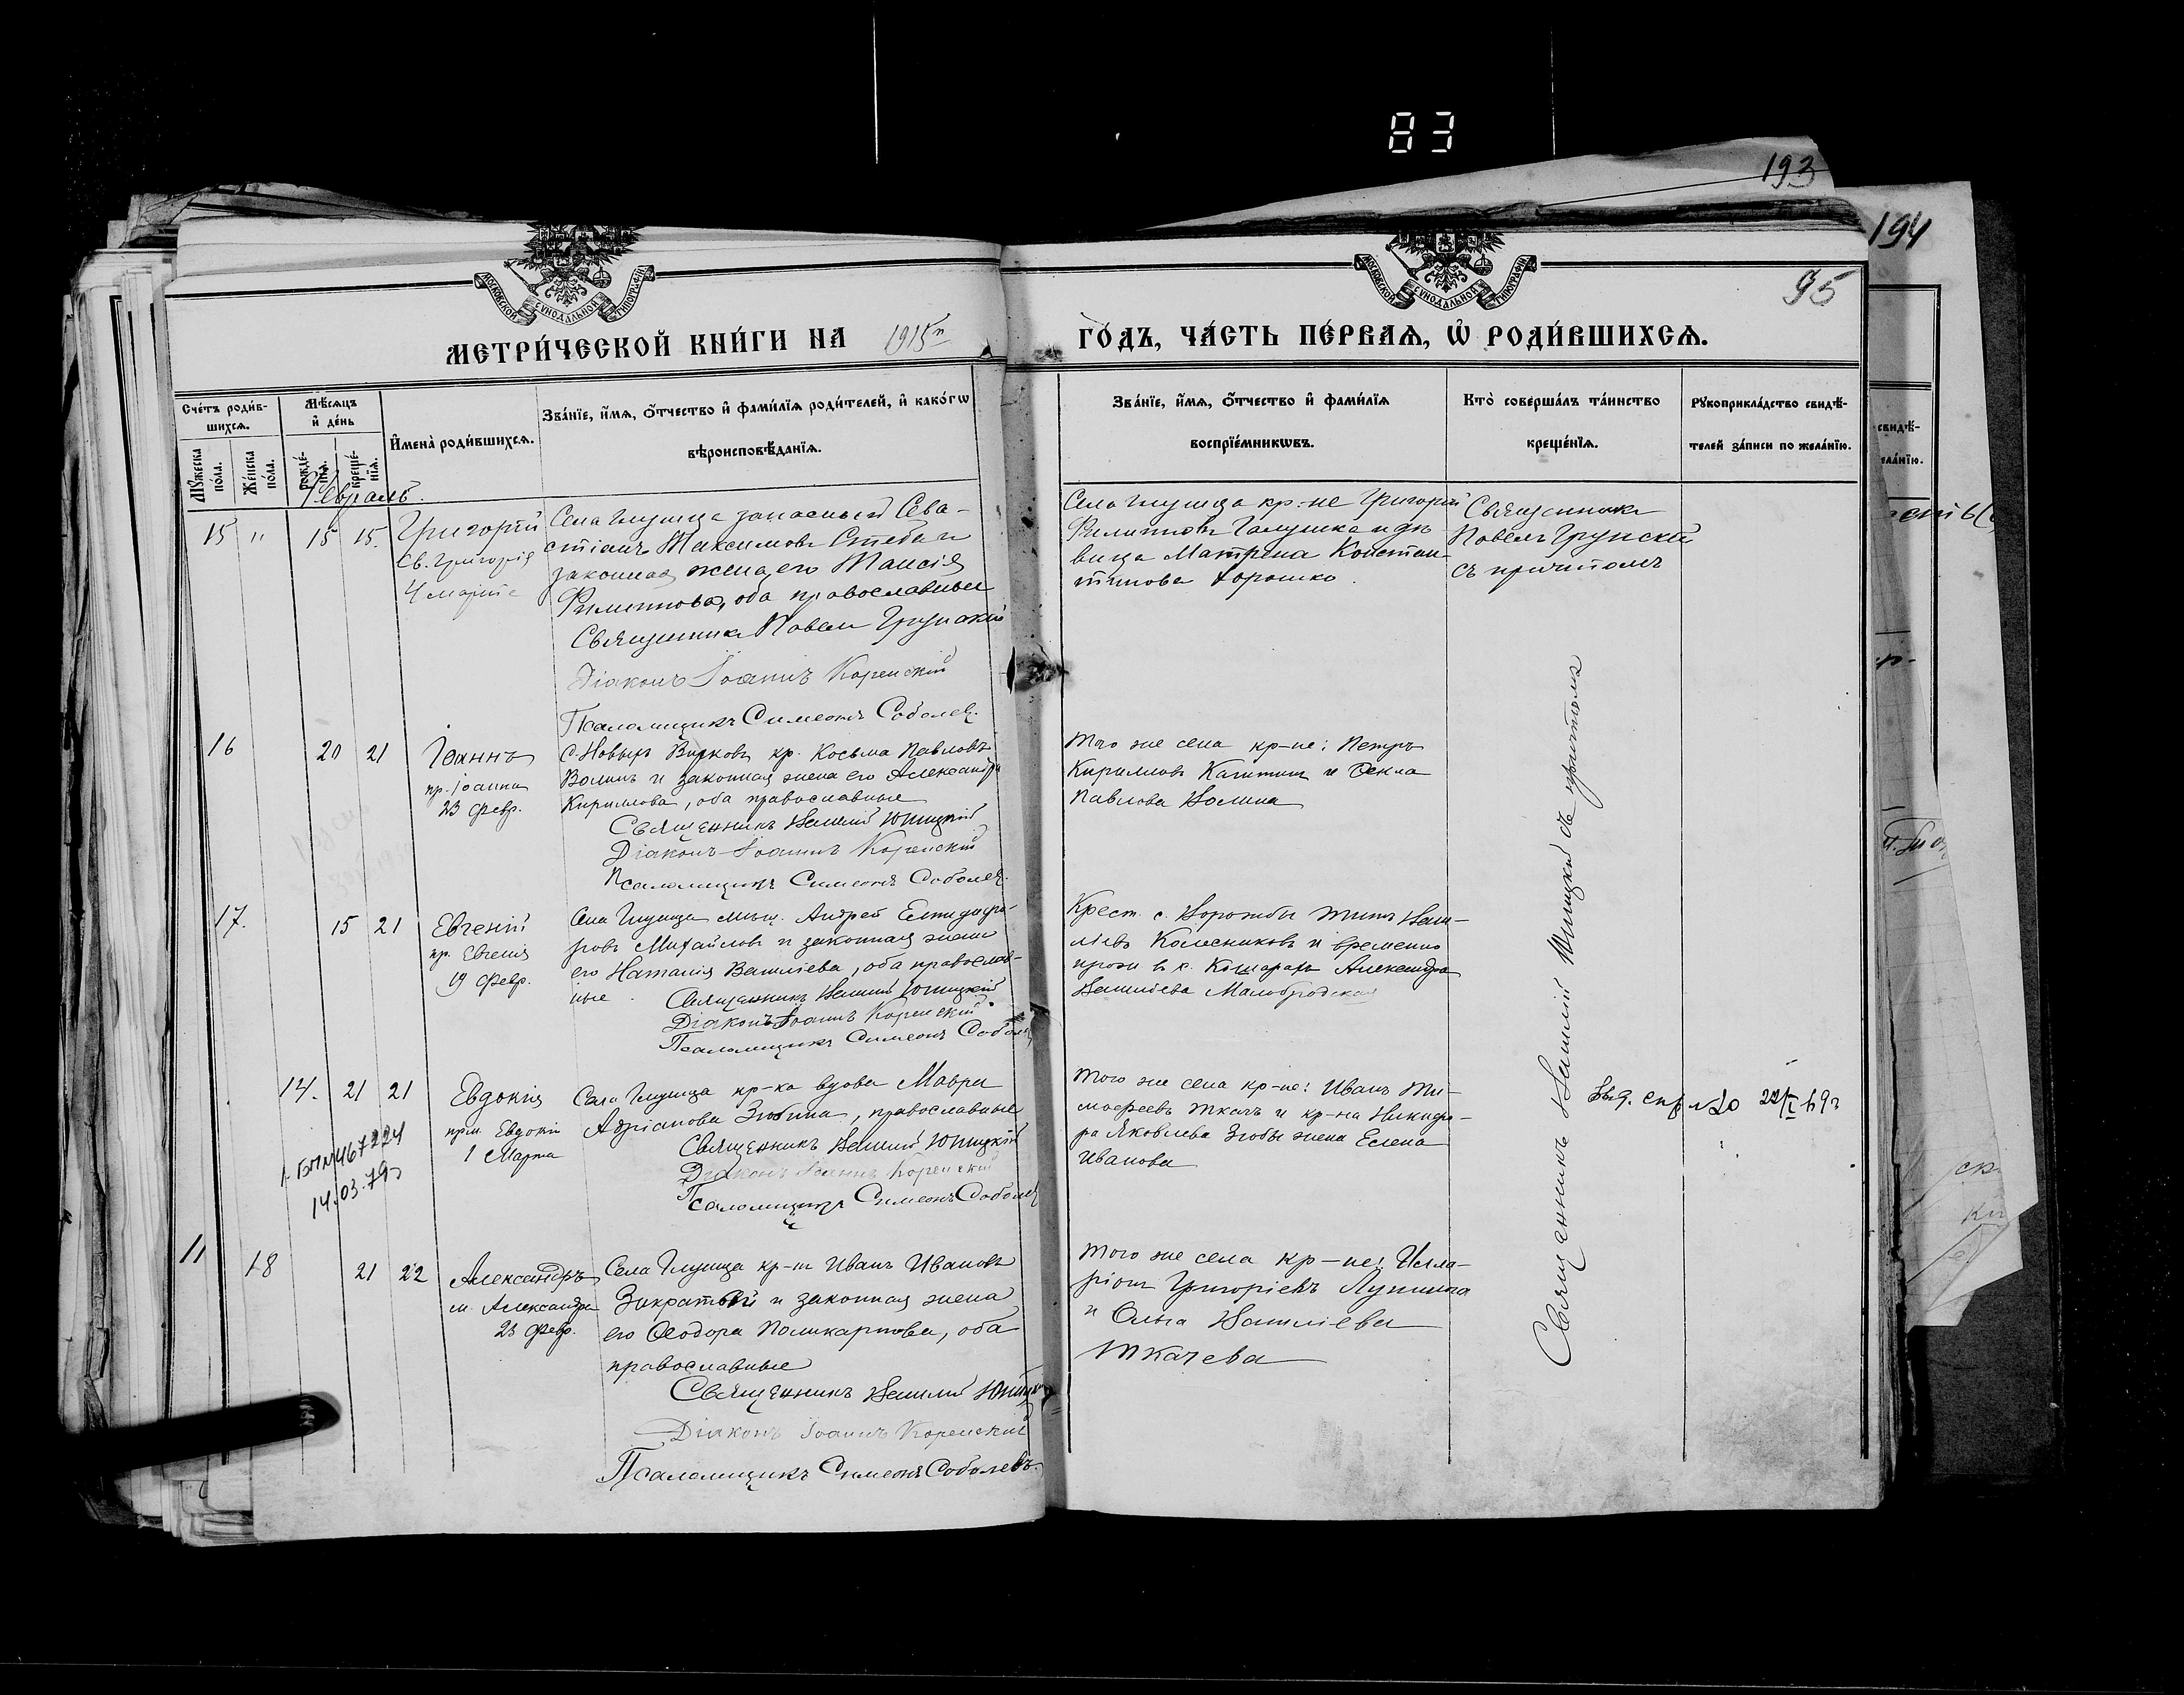 83
193
194
95
МОСКОВСКОЙ СѴНОДАЛЬНОЙ ТИПОГРАФІИ
МОСКОВСКОЙ СѴНОДАЛЬНОЙ ТИПОГРАФІИ
МЕТРИ́ЧЕСКОЙ КНИ́ГИ НА 1915
ГО́ДЪ, ЧА́СТЬ ПЕ́РВАѦ, Ѡ҆ РОДИ́ВШИХСѦ.
Сче́тъ роди́в-
шихсѧ.
Мꙋ́жеска по́ла.
Же́нска по́ла.
Мѣ́сѧцъ и҆ де́нь
рожде́-нїѧ.
креще́-нїѧ.
И҆мена̀ роди́вшихсѧ.
Зва́нїе, и҆́мѧ, ѻ҆́тчество и҆ фами́лїѧ роди́телей, и҆ како́гѡ
вѣроисповѣ́данїѧ.
Зва́нїе, и҆́мѧ, ѻ҆́тчество и҆ фами́лїѧ
воспрїе́мникѡвъ.
Кто̀ соверша́лъ та́инство
креще́нїѧ.
Рꙋкоприкла́дство свидѣ́-
телей за́писи по жела́нїю.
Февраль.
15 " 15 15.
Григорій
Св. Григорія
4 марта
Села Глушца запасный Сева-
стіанъ Максимовъ и
законная жена его Таисія
Филиппова, оба православные
Священникъ Павелъ Грунскій
Діаконъ Іоаннъ Коренскій
Псаломщикъ Симеонъ Соболев.
Села Глушца кр-не Григорій
Филипповъ Галушка и дѣ-
вица Матрена Констан-
тинова Хорошко.
Священникъ
Павелъ Грунскій
съ причтомъ
16 20 21
Іоаннъ
пр. Іоанна
23 февр.
С. Новыхъ Вирковъ кр. Косьма Павловъ
Волинъ и законная жена его Александра
Кириллова, оба православные
Священникъ Василій Юницкій
Діаконъ Іоаннъ Коренскій
Псаломщикъ Симеонъ Соболев.
Того же села кр-не: Петръ
Кирилловъ и Ѳекла
Павлова Волина
17. 15 21
Евгеній
пр. Евгенія
19 февр.
Села Глушца мѣщ. Андрей
Михайловъ и законная жена
его Наталія Василіева, оба православ-
ные.
Священникъ Василій Юницкій
Діаконъ Іоаннъ Коренскій
Псаломщикъ Симеонъ Соболев
Крест. с. Ворожбы Васи-
ліевъ Колесниковъ и временно
прож. в с. Александра
Василіева Малобродская
14. 21 21
Евдокія
прм. Евдокіи
1 Марта
I-БП №467224
14.03.79г
Села Глушца кр-ка вдова Мавра
Адріанова Злобина, православные
Священникъ Василій Юницкій
Діаконъ Іоаннъ Коренскій
Псаломщикъ Симеонъ Соболев
Того же села кр-не: Иванъ Ти-
моѳеевъ Ткачъ и кр-на Никифо-
ра Яковлева Злобы жена Елена
Иванова
Выд. спр №20
11
18 21 22
Александръ
м. Александра
23 февр.
Села Глушца кр-нъ Иванъ Ивановъ
и законная жена
его Ѳеодора Поликарпова, оба
православные
Священникъ Василій Юницкій
Діаконъ Іоаннъ Коренскій
Псаломщикъ Симеонъ Соболевъ.
Того же села кр-не: Илла-
ріонъ Григоріевъ Лупинка
и Ольга Василіева
Ткачева
Священникъ Василій Юницкій съ причтомъ